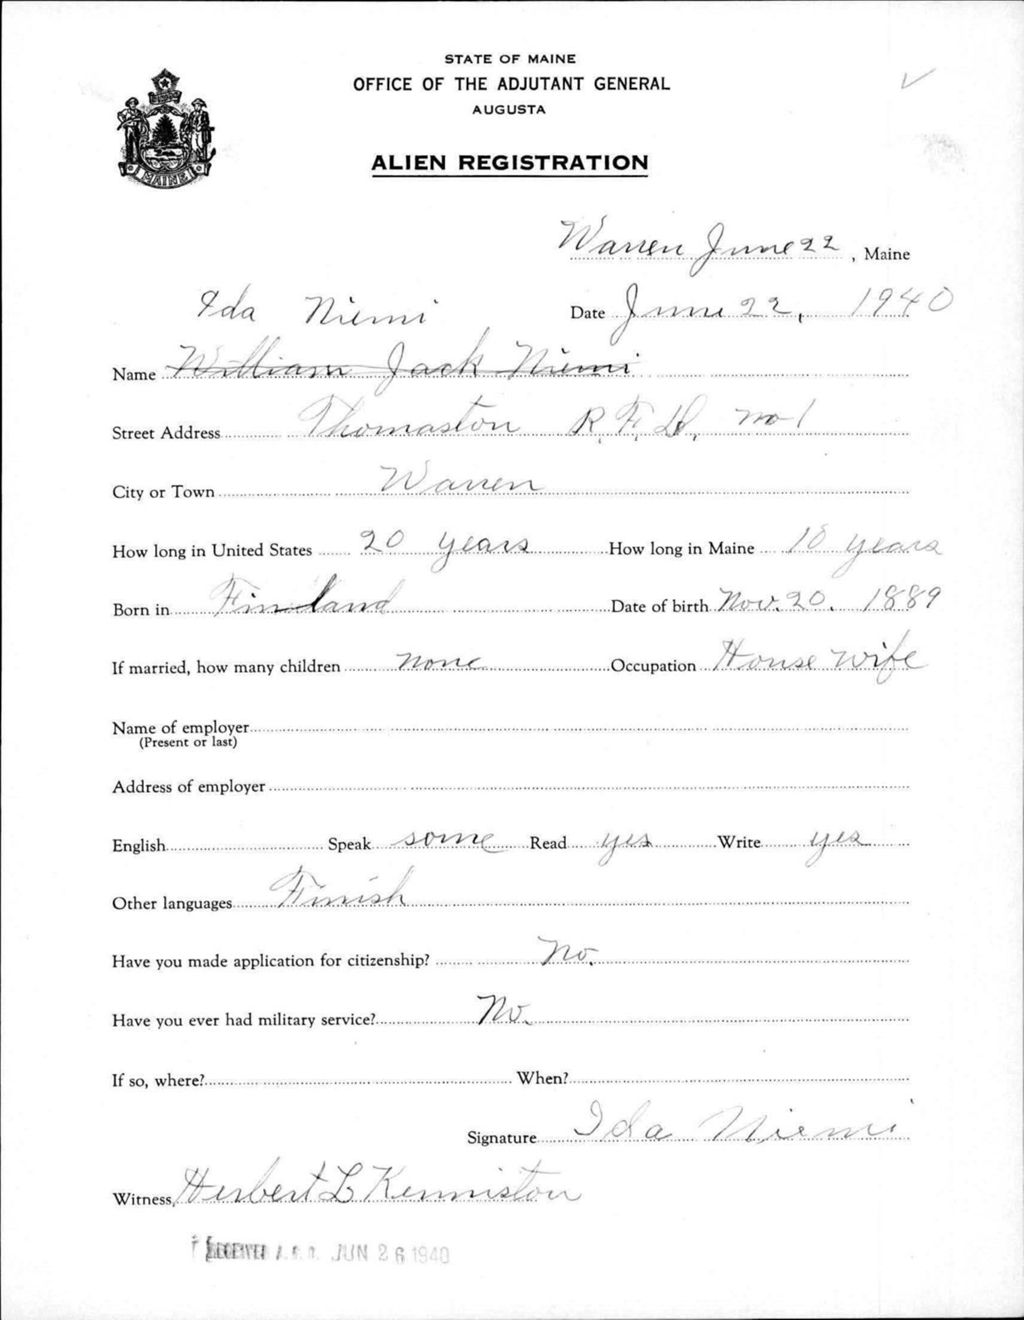 STATE OF MAINE
OFFICE OF THE ADJUTANT GENERAL
AUGUSTA
MAINE
ALIEN REGISTRATION
Warren June 22, Maine
Ida Niemi Date June 22, 1940
Name William Jack Niemi
Street Address Thomaston R.F.D. no 1
City or Town Warren
How long in United States 20 years How long in Maine 18 years
Born in Finland Date of birth Nov. 20. 1889
If married, how many children none Occupation House wife
Name of employer
(Present or last)
Address of employer
English Speak some Read yes Write yes
Other languages Finish
Have you made application for citizenship? No.
Have you ever had military service? No.
If so, where? When?
Signature Ida Niemi
Witness Herbert L Kenniston
RECEIVED A.G.O. JUN 26 1940